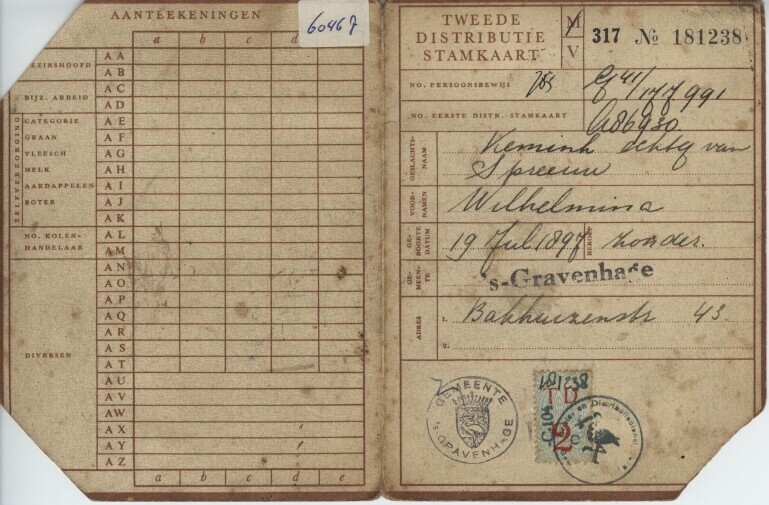 AANTEEKENINGEN
60467
a b c d e
BEZIRKSHOOFD
AA
AB
BIJZ. ARBEID
AC
AD
ZELFVERZORGING
CATEGORIE
AE
GRAAN
AF
VLEESCH
AG
MELK
AH
AARDAPPELEN
AI
BOTER
AJ
AK
NO. KOLEN-
HANDELAAR
AL
AM
DIVERSEN
AN
AO
AP
AQ
AR
AS
AT
AU
AV
AW
AX
AY
AZ
a b c d e
TWEEDE
DISTRIBUTIE
STAMKAART
M
V
317 № 181238
NO. PERSOONSBEWIJS
NO. EERSTE DISTR. STAMKAART
A86930
GESLACHTS-
NAAM
Kemink echtg van
Spreeuw
VOOR-
NAMEN
Wilhelmina
GE-
BOORTE
DATUM
19 Juli 1897
BEROEP
zonder.
GE-
MEEN-
TE
's-Gravenhage
ADRES
1. Bakhuizenstr 43
2.
GEMEENTE
's-GRAVENHAGE
181238
TD
2
C.104